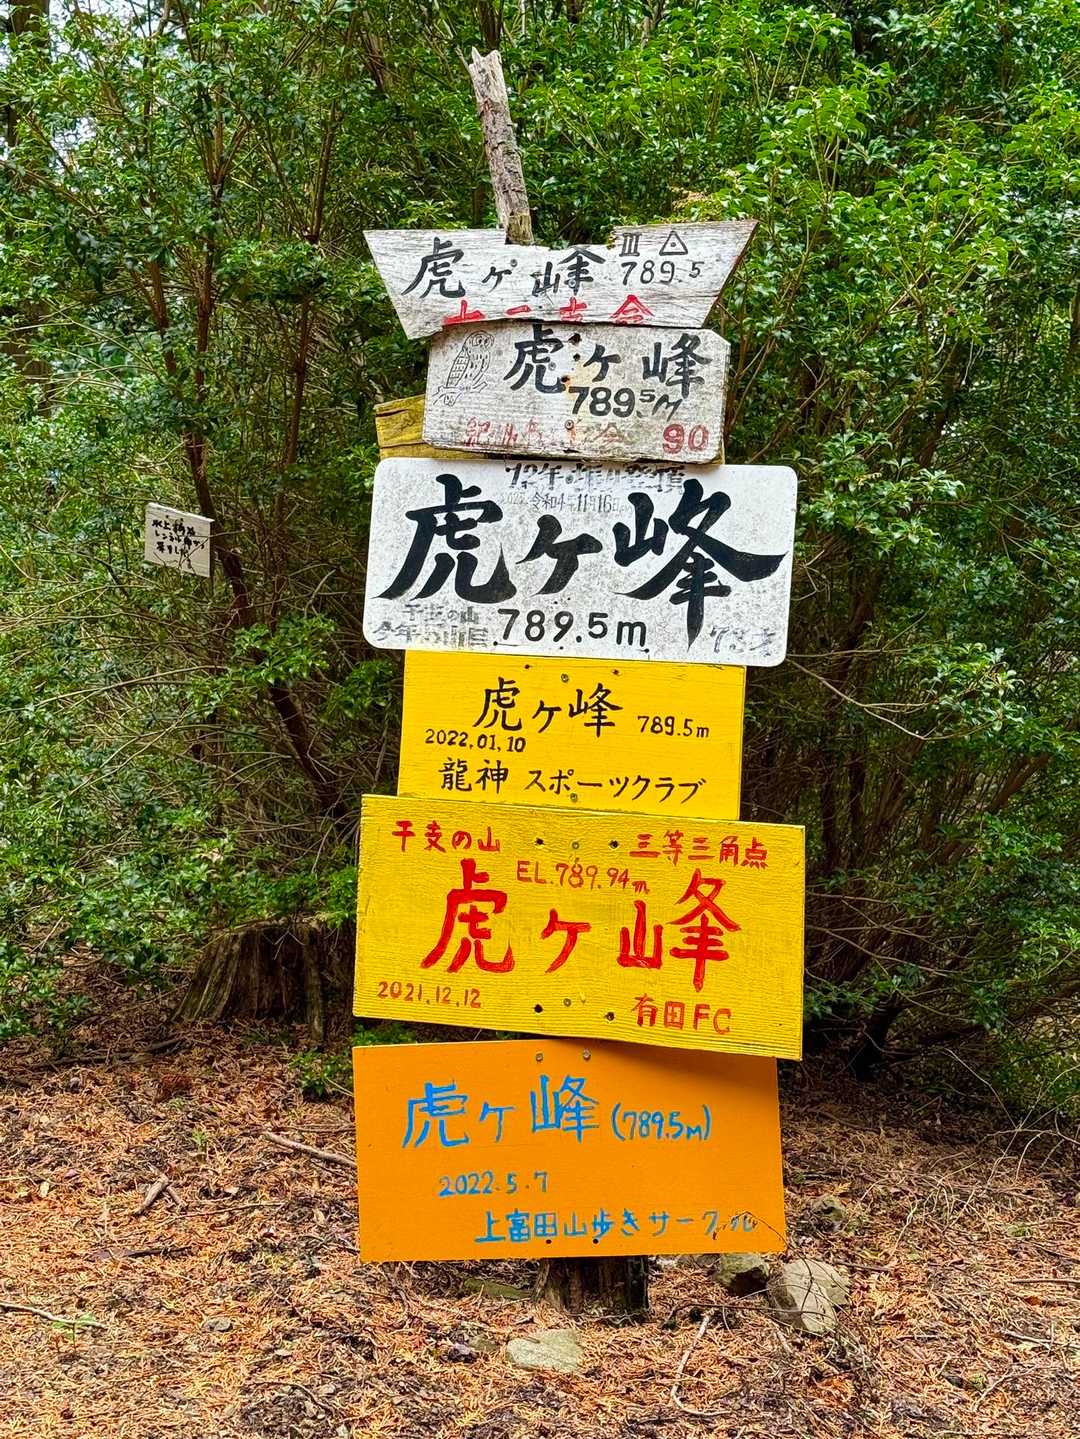 虎ヶ峰 Ⅲ △
789.5
十二支会
虎ヶ峰
789.5m
90
12年 登頂
2022 令和4年11月16日
虎ヶ峰
干支の山
789.5m
虎ヶ峰 789.5m
2022.01.10
龍神 スポーツクラブ
干支の山 三等三角点
EL.789.94m
虎ヶ峰
2021.12.12 有田FC
虎ヶ峰 (789.5m)
2022.5.7
上富田山歩きサークル